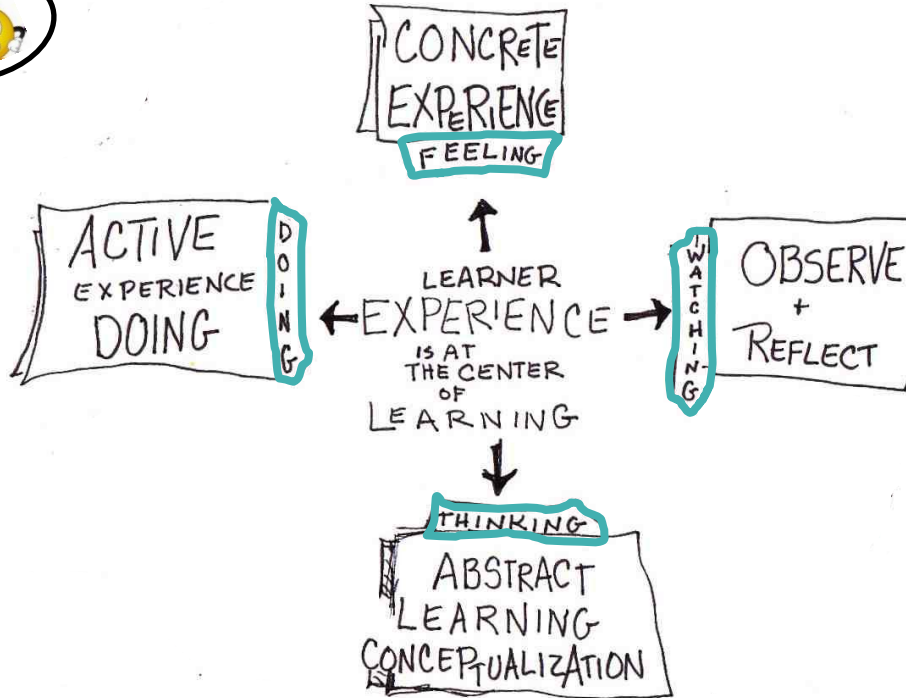 CONCRETE
EXPERIENCE
FEELING
ACTIVE
EXPERIENCE
DOING
DOING
LEARNER
EXPERIENCE
IS AT
THE CENTER
OF
LEARNING
WATCHING
OBSERVE
+
REFLECT
THINKING
ABSTRACT
LEARNING
CONCEPTUALIZATION